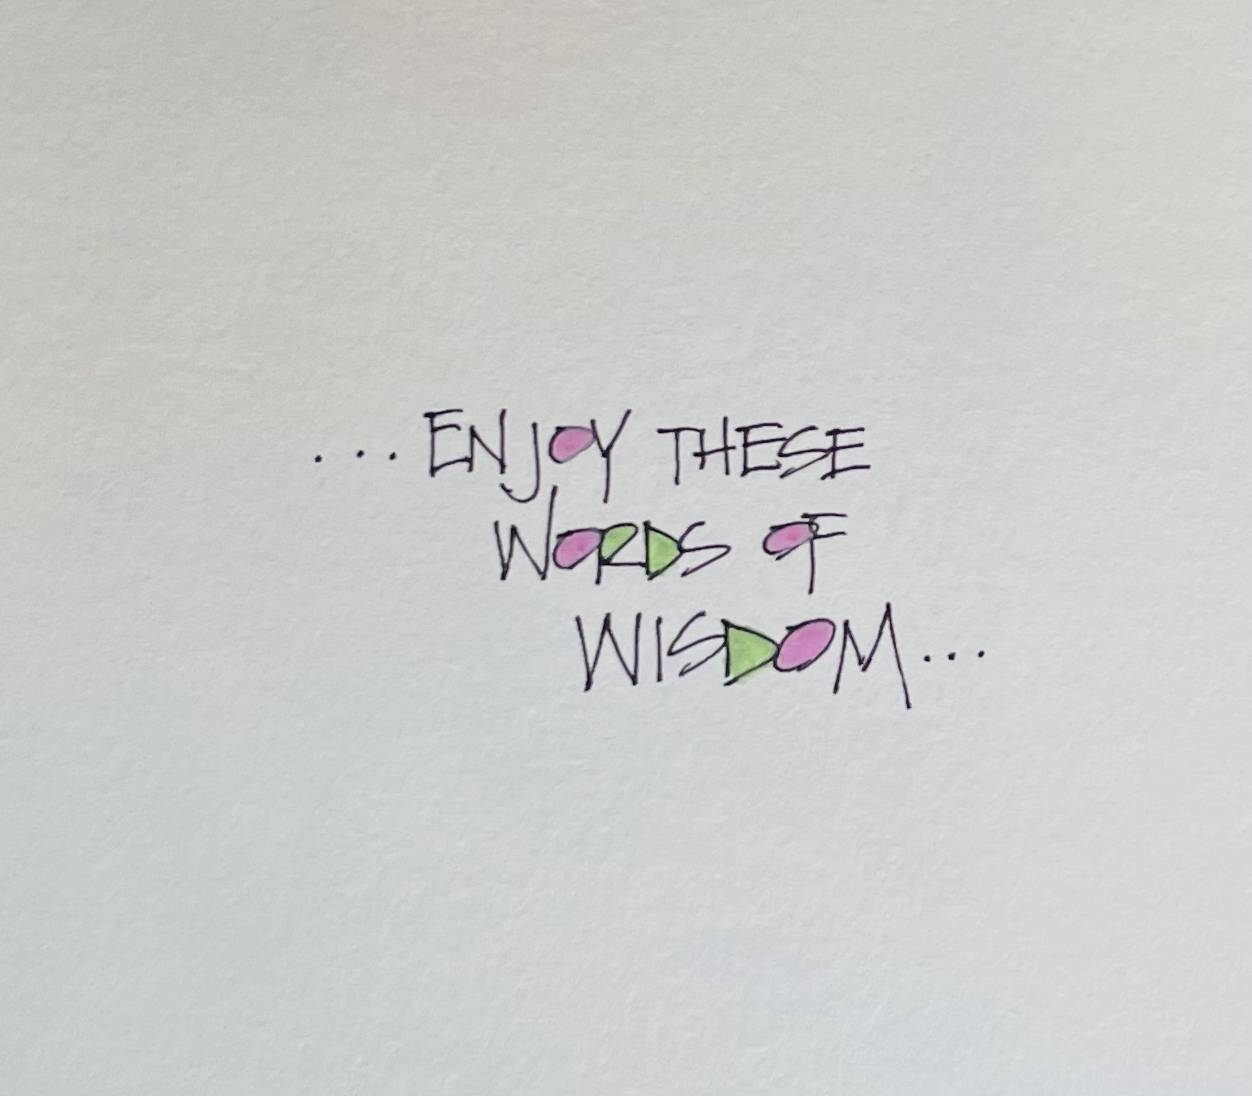 ...ENJOY THESE
WORDS OF
WISDOM...